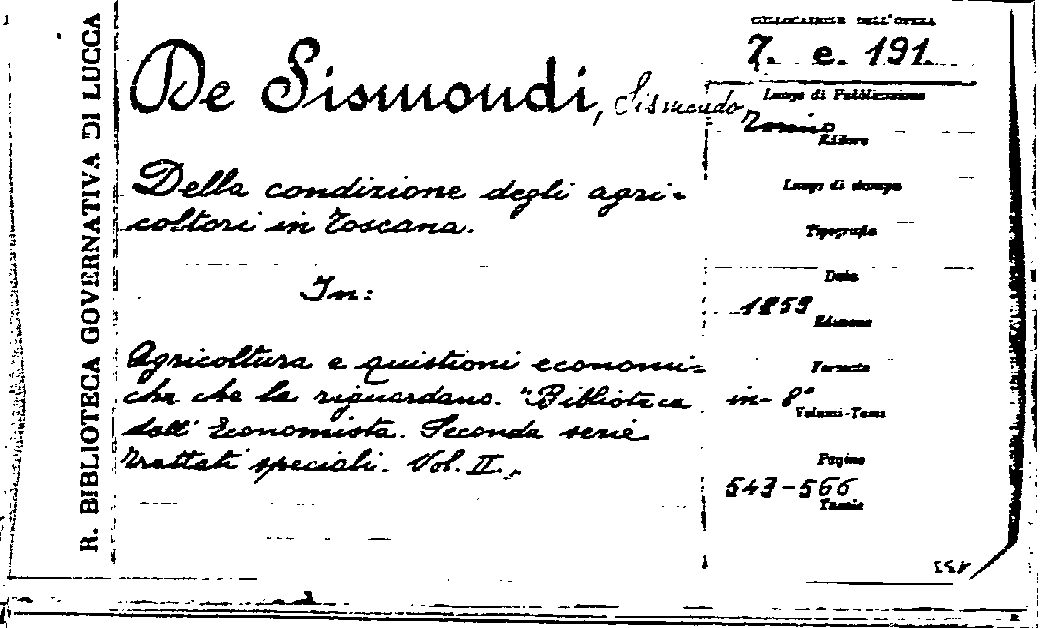 R. BIBLIOTECA GOVERNATIVA DI LUCCA
COLLOCAZIONE DELL'OPERA
7. e. 191.
De Sismondi, Sismondo
Luogo di Pubblicazione
Torino
Editore
Della condizione degli agri-
coltori in Toscana.
Luogo di stampa
Tipografia
In:
Data
1859
Edizione
Agricoltura e quistioni economi=
che che la riguardano. "Biblioteca
dell' Economista. Seconda serie
Trattati speciali. Vol. II.,
Formato
in-8°
Volumi-Tomi
Pagine
543-566
Tavole